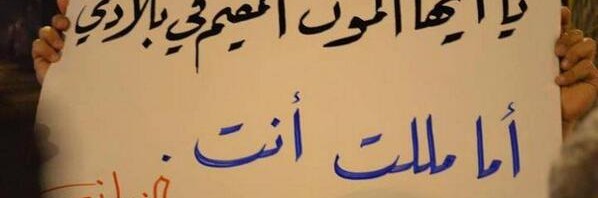 يا أيها الموت المقيم في بلادي
أما مللت أنت .